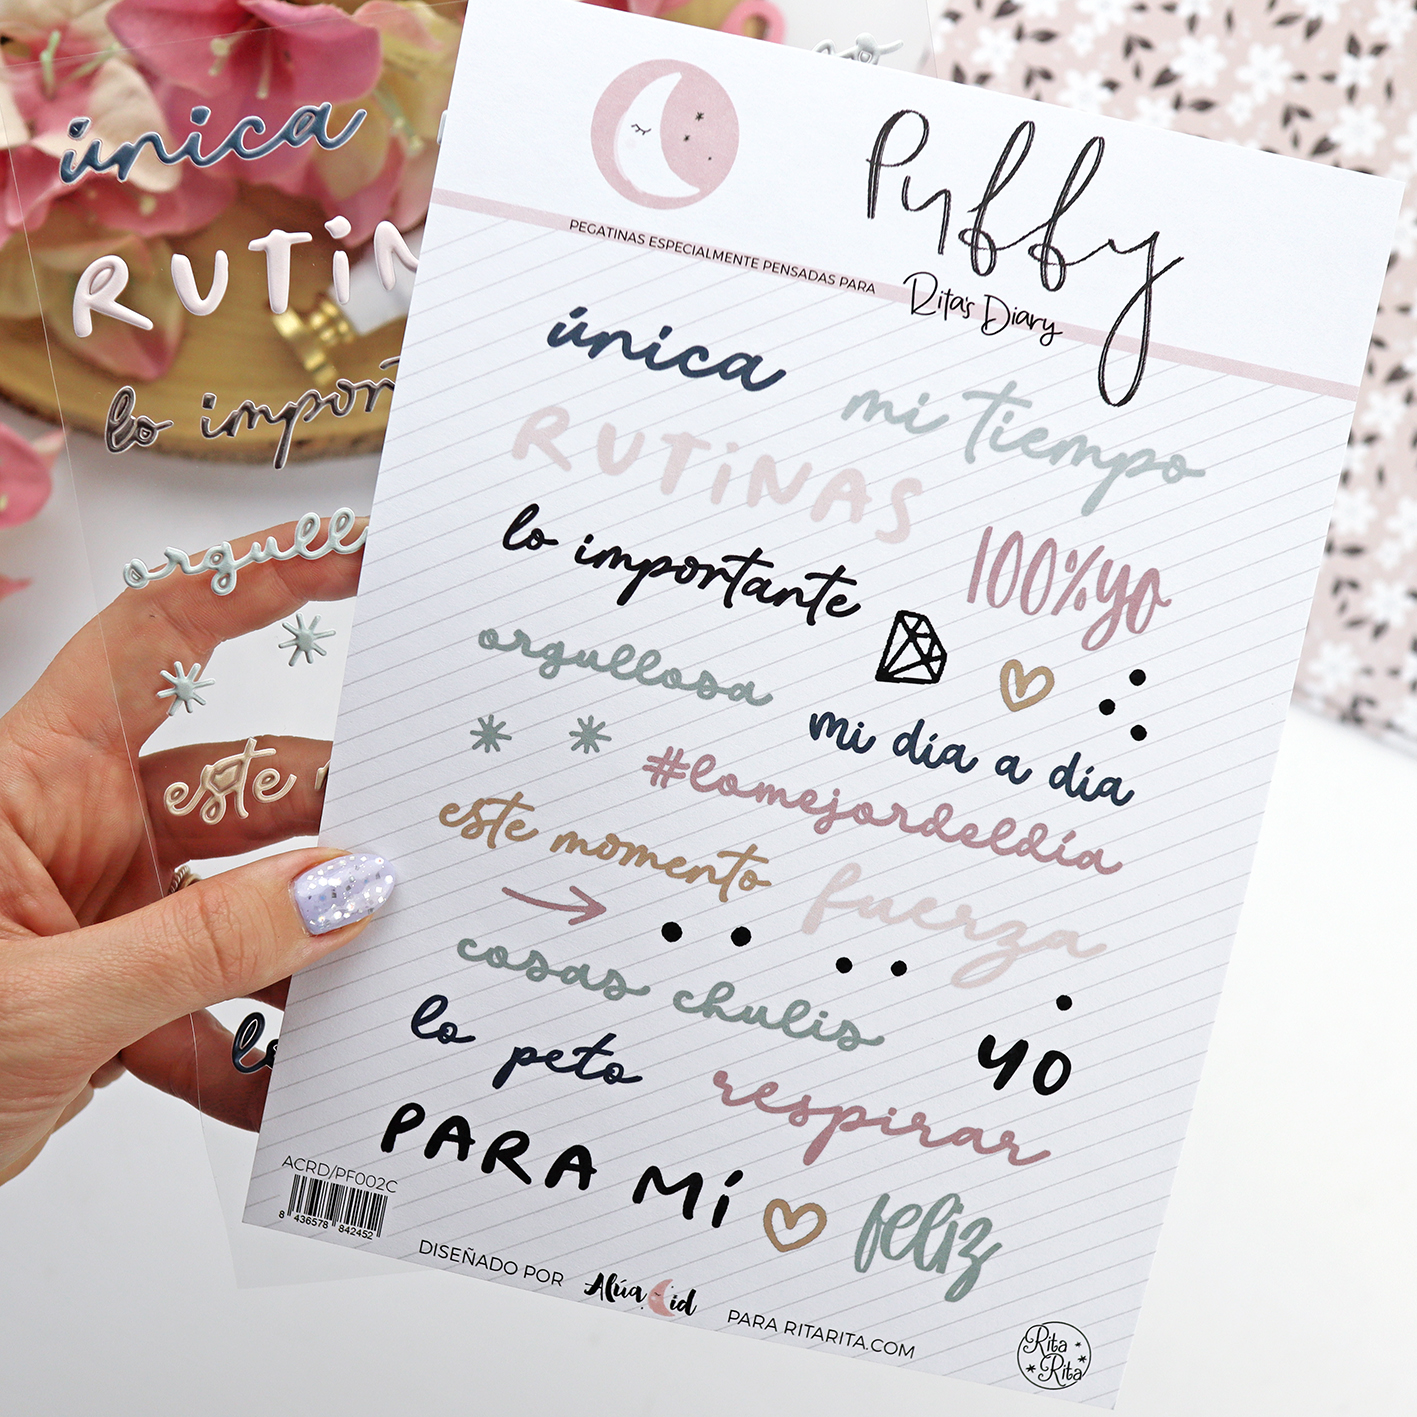 única
RUTiN
lo import
orgull
este
lo
Puffy
PEGATINAS ESPECIALMENTE PENSADAS PARA
Rita's Diary
única
mi tiempo
RUTiNAS
lo importante
100%yo
orgullosa
mi día a día
#lomejordeldía
este momento
fuerza
cosas chulis
yo
lo peto
respirar
PARA Mí
feliz
ACRD/PF002C
8 436578 842452
DISEÑADO POR Alúa Cid PARA RITARITA.COM
Rita Rita